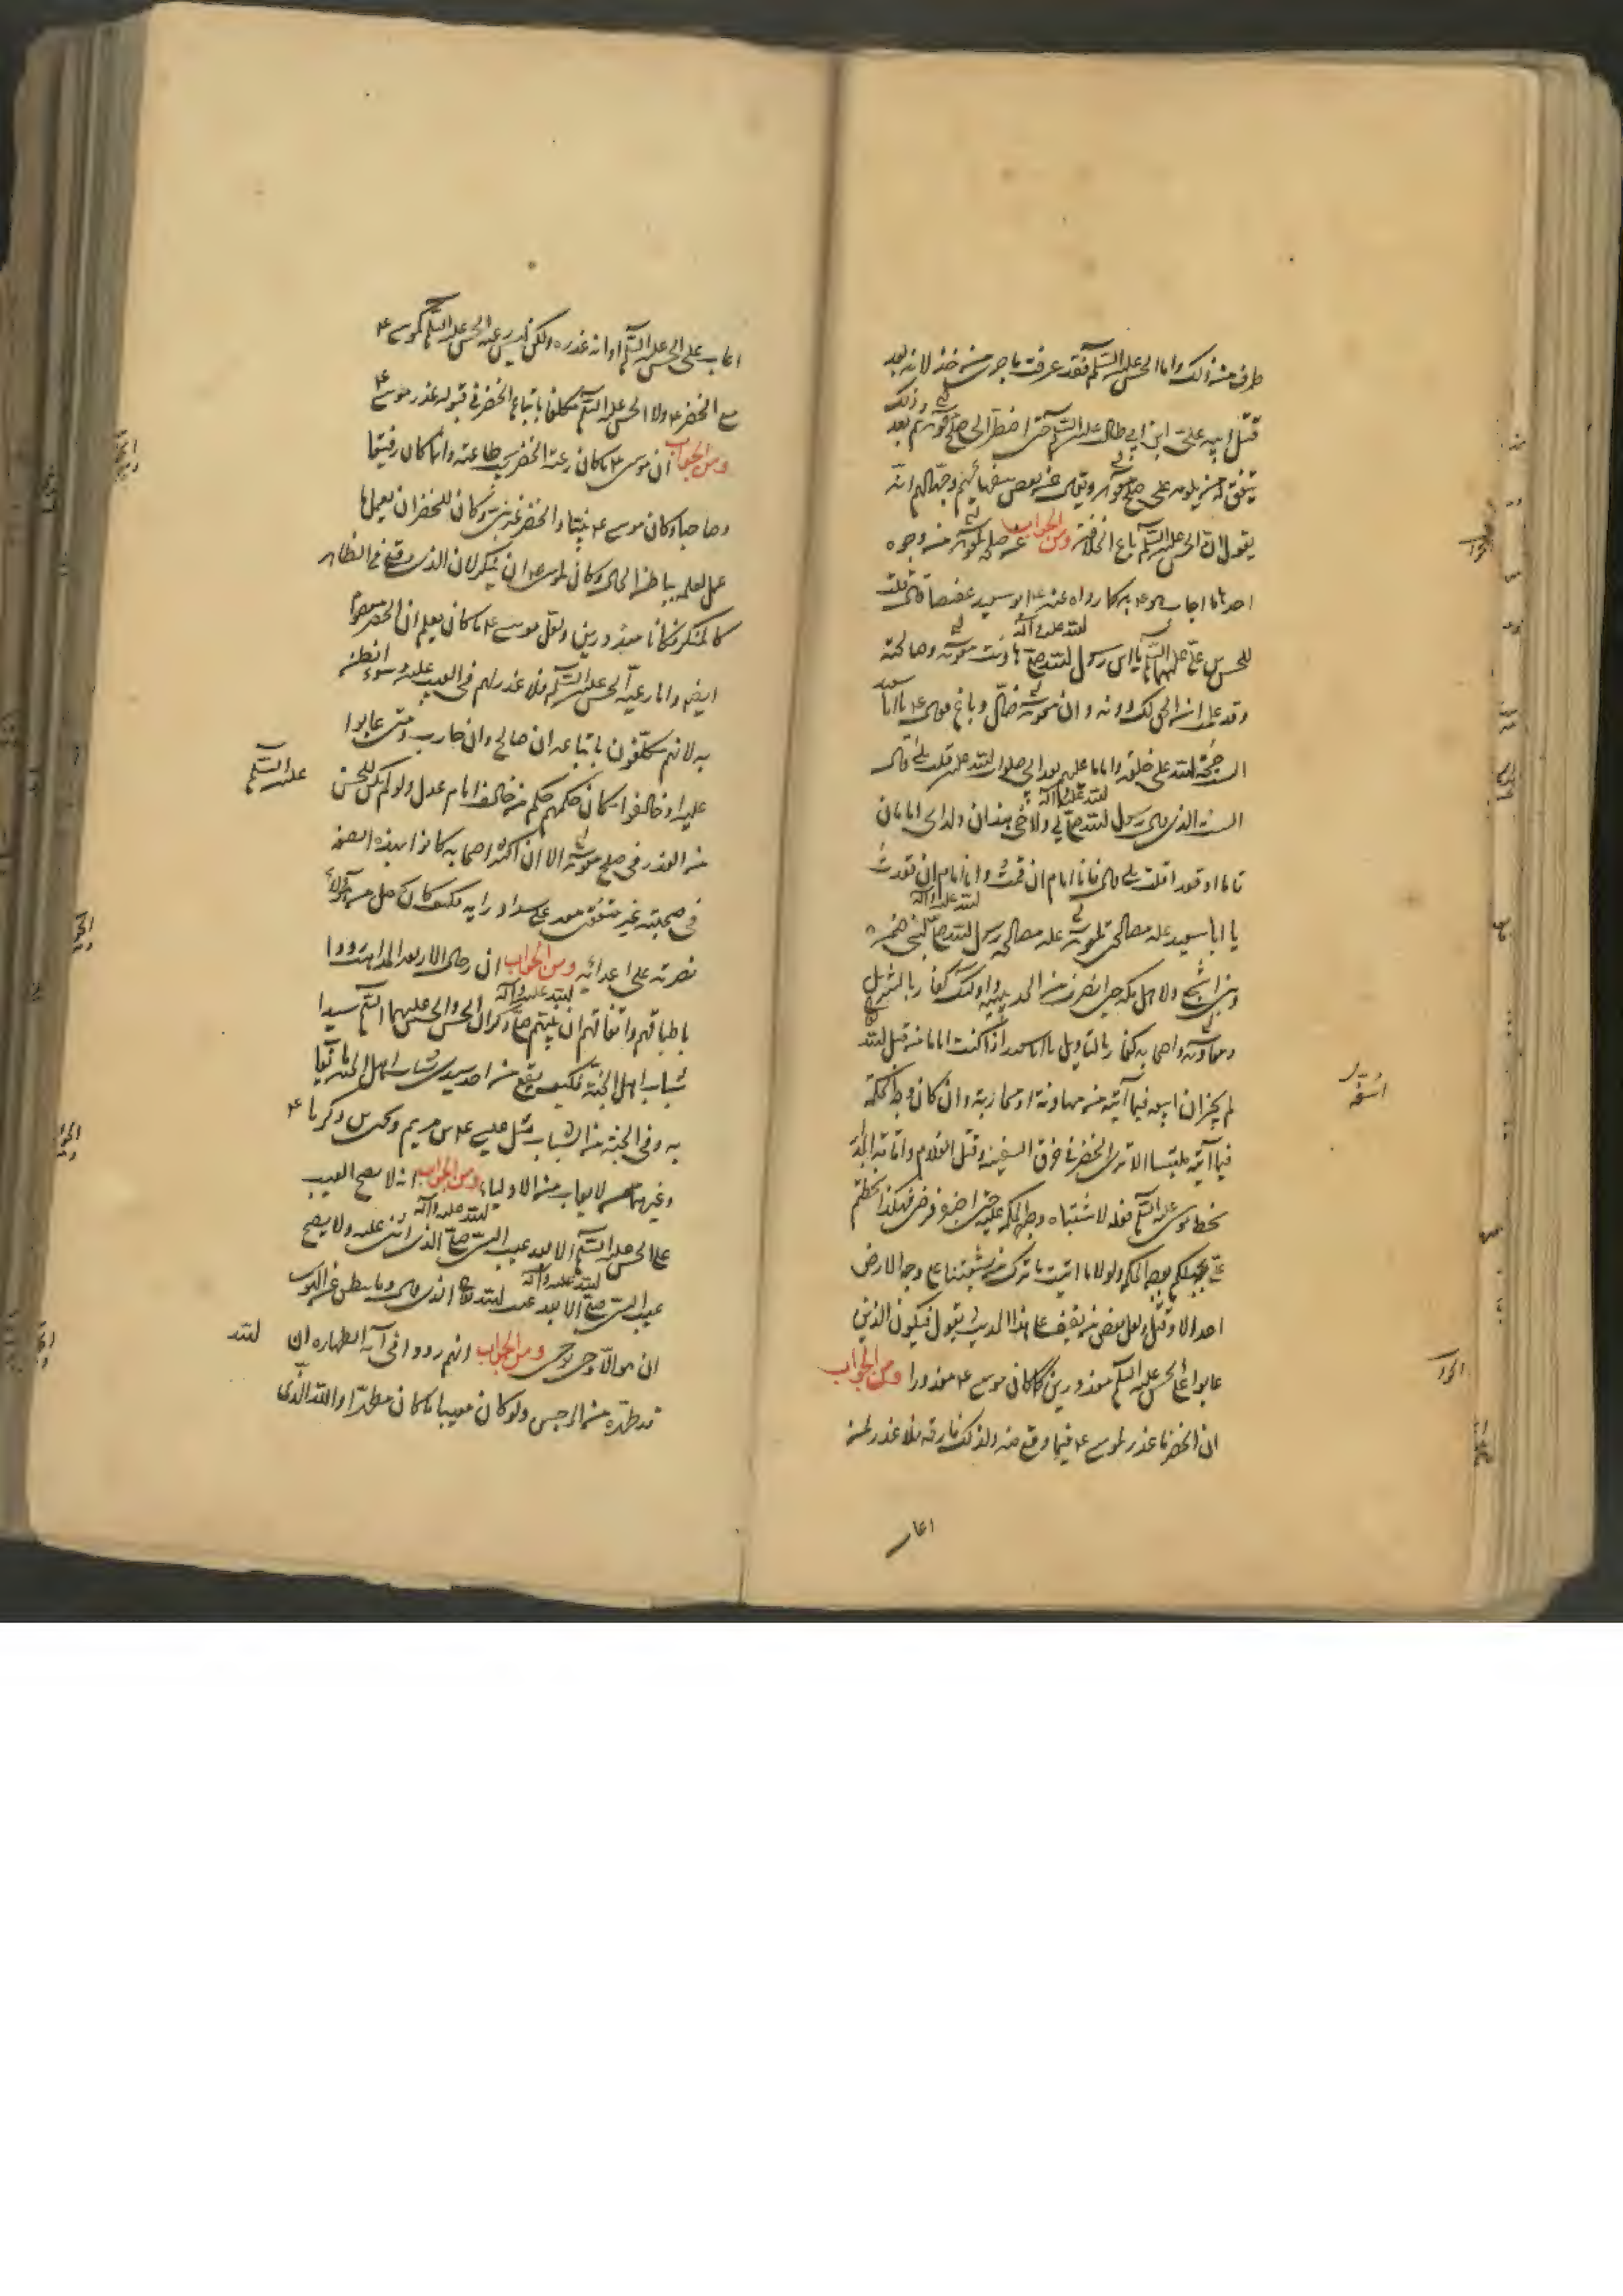 طرف من ذلك واما الحسن عليه السلم فقد عرفت ما جرى من خذلانه بعد
قتل ابيه علي ابن ابي طالب عليه السلم حتى اضطر الى صلح معوية ثم بعد ذلك
يتفق له من يلومه على صلح معوية وقال عنه بعض سفهائهم وجهالهم انه
يقول ان الحسن عليه السلم باع الخلافة ومن الجواب عن صلح لمعوية من وجوه
احدها ما اجاب هو ع به كما رواه عنه ابو سعيد عقيصا قال قلت
للحسن بن علي عليهما السلم يا ابن رسول الله صلى الله عليه وآله لم داهنت معوية وصالحته
وقد علمت ان الحق لك دونه وان معوية ضال وباغ فقال ع يا ابا سعيد
الست حجة الله على خلقه واماما عليهم بعد ابي صلوات الله عليه قلت بلى قال
الست الذي قال رسول الله صلى الله عليه وآله لي ولاخي هذان ولداي امامان
قاما او قعدا قلت بلى قال فانا امام ان قمت وانا امام ان قعدت
يا ابا سعيد علة مصالحتي لمعوية علة مصالحة رسول الله صلى الله عليه وآله لبني ضمرة
وبني اشجع ولاهل مكة حين انصرف من الحديبية اولئك كفار بالتنزيل
ومعاوية واصحابه كفار بالتاويل يا ابا سعيد اذا كنت اماما من قبل الله
لم يجز ان اسفه فيما آتيه من مهادنة او محاربة وان كان وجه الحكمة
فيما آتيته ملتبسا الا ترى الخضر في خرق السفينة وقتل الغلام واقامة الجدار
سخط موسى عليه السلم فعله لاشتباه وجه الحكمة عليه حتى اخبره فرضي فهكذا سخطتم
علي بجهلكم بوجه الحكمة ولولا ما اتيت ما ترك من شيعتنا على وجه الارض
احد الا وقتل ولعل بعض من يقف على هذا الحديث يقول فيكون الذين
عابوا على الحسن عليه السلم معذورين كما كان موسى ع معذورا ومن الجواب
ان الخضر ما عذر لموسى ع فيما وقع منه ولذلك فارقه فلا عذر لمن
اعاب
اسفه
اعاب على الحسن عليه السلم او انه عذره ولكن ليس رعية الحسن عليه السلم كموسى ع
مع الخضر ع ولا الحسن عليه السلم مكلفا باتباع الخضر في قبوله عذر موسى ع
ومن الجواب ان موسى ع ما كان رعية الخضر يجب طاعته وانما كان رفيقا
وصاحبا وكان موسى ع نبيا والخضر غير نبي وكان للخضر ان يعمل
عمل لعلمه بباطن الحال وكان لموسى ع ان ينكر لان الذي وقع في الظاهر
كالمنكر فكانا معذورين ولعل موسى ع ما كان يعلم ان الخضر معصوم
ايضا واما رعية الحسن عليه السلم فلا عذر لهم في العيب عليه وسوء الظن
به لانهم مكلفون باتباعه ان صالح وان حارب ومتى عابوا
عليه او خالفوا كان حكمهم حكم من خالف امام عدل ولو لم يكن للحسن عليه السلم
من العذر في صلح معوية الا ان اكثر اصحابه كانوا بهذه الصفة
في صحبته غير متفق معه على سداد رايه فكيف كان يحصل من هؤلاء
نصرته على اعدائه ومن الجواب ان رجال الاربعة المذاهب رووا
باطباقهم واتفاقهم ان نبيهم صلى الله عليه وآله ذكر ان الحسن والحسين عليهما السلم سيدا
شباب اهل الجنة فكيف يقع من احد سيدي شباب اهل الجنة ما يعاب
به وفي الجنة من الشباب مثل عيسى ع بن مريم ويحيى بن زكريا ع
وغيرهما ممن لا يعاب من الاولياء ومن الجواب انه لا يصح العيب
على الحسن عليه السلم الا بعد عيب النبي صلى الله عليه وآله الذي اثنى عليه ولا يصح
عيب النبي صلى الله عليه وآله الا بعد عيب الله الذي قال وما ينطق عن الهوى
ان هو الا وحي يوحى ومن الجواب انهم رووا في آية الطهارة ان الله
قد طهره من الرجس ولو كان معيبا ما كان مطهرا والله الذي